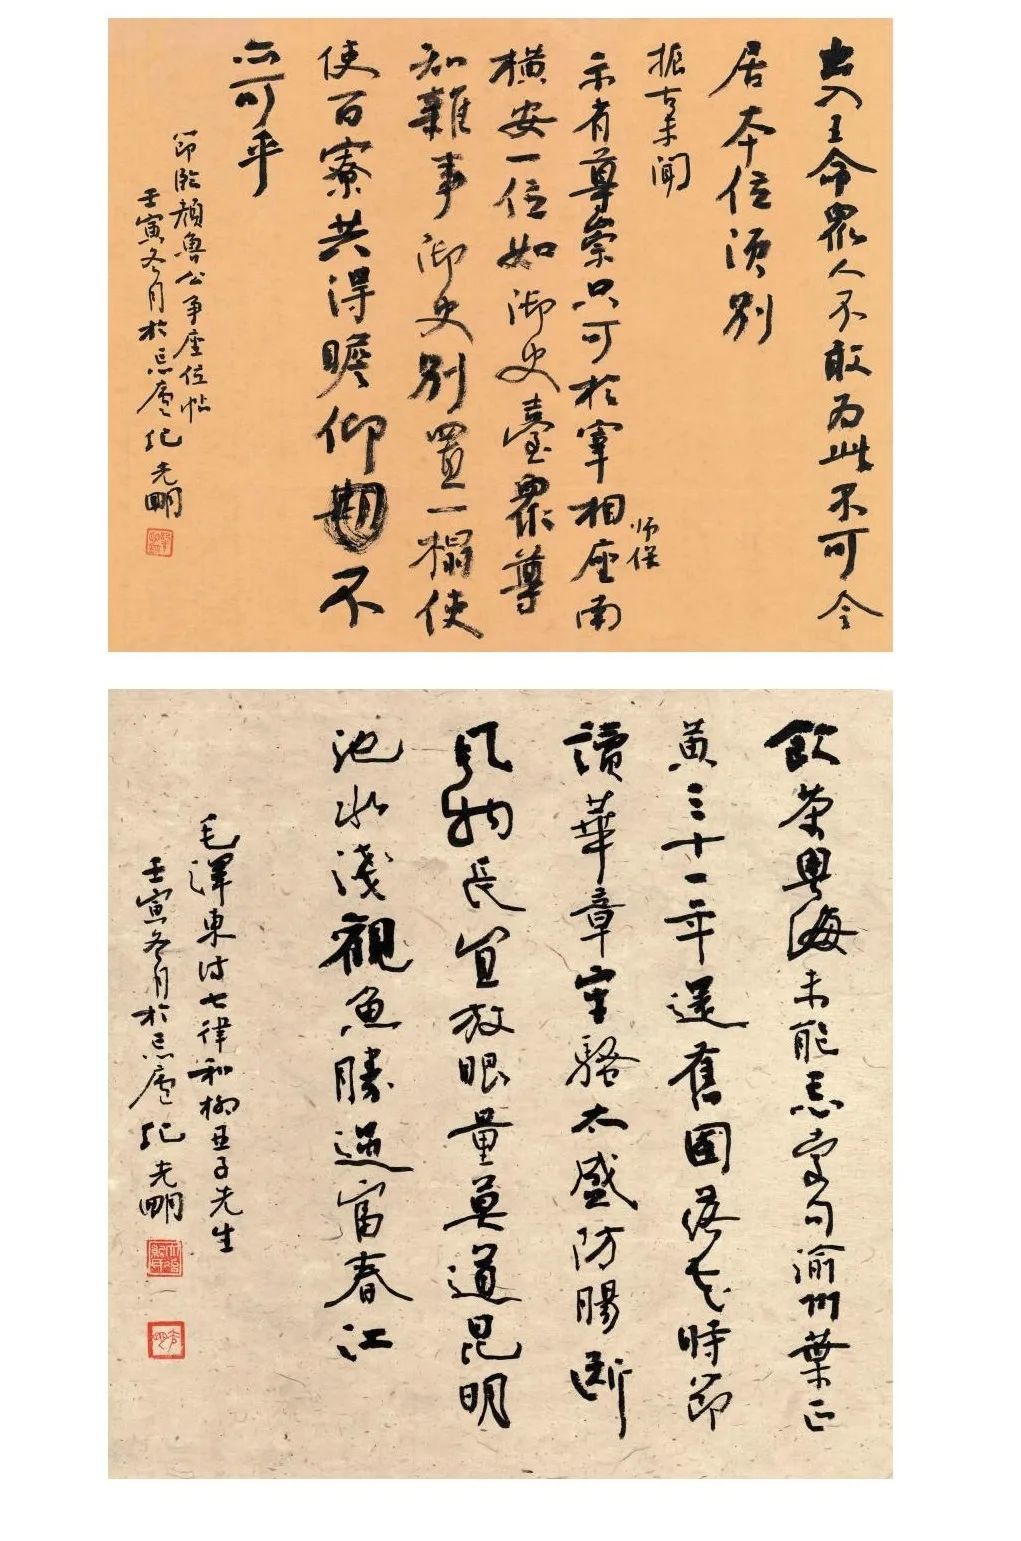 出入王命眾人不敢为此不可令
居本位须别
振古未聞
示有尊崇只可於宰相座南
师保
横安一位如御史臺眾尊
知雜事御史别置一榻使
使百寮共得瞻仰期不
亦可乎
節临颜魯公争座位帖
壬寅冬月於忘庐纪光明
飲茶粤海未能忘索句渝州葉正
黄三十一年還舊國落花時節
讀華章牢騷太盛防腸断
風物長宜放眼量莫道昆明
池水淺觀魚勝過富春江
毛澤東诗七律和柳亚子先生
壬寅冬月於忘庐纪光明